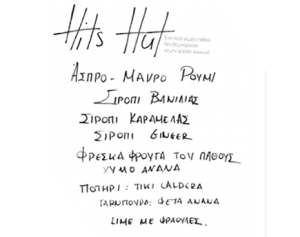 Hits Hut
ΆΣΠΡΟ - ΜΑΥΡΟ ΡΟΥΜΙ
ΣΙΡΟΠΙ ΒΑΝΙΛΙΑΣ
ΣΙΡΟΠΙ ΚΑΡΑΜΕΛΑΣ
ΣΙΡΟΠΙ GINGER
ΦΡΕΣΚΑ ΦΡΟΥΤΑ ΤΟΥ ΠΑΘΟΥΣ
ΧΥΜΟ ΑΝΑΝΑ
ΠΟΤΗΡΙ : TIKI CALDERA
ΓΑΡΝΙΤΟΥΡΑ: ΦΕΤΑ ΑΝΑΝΑ
LIME ΜΕ ΦΡΑΟΥΛΕΣ.